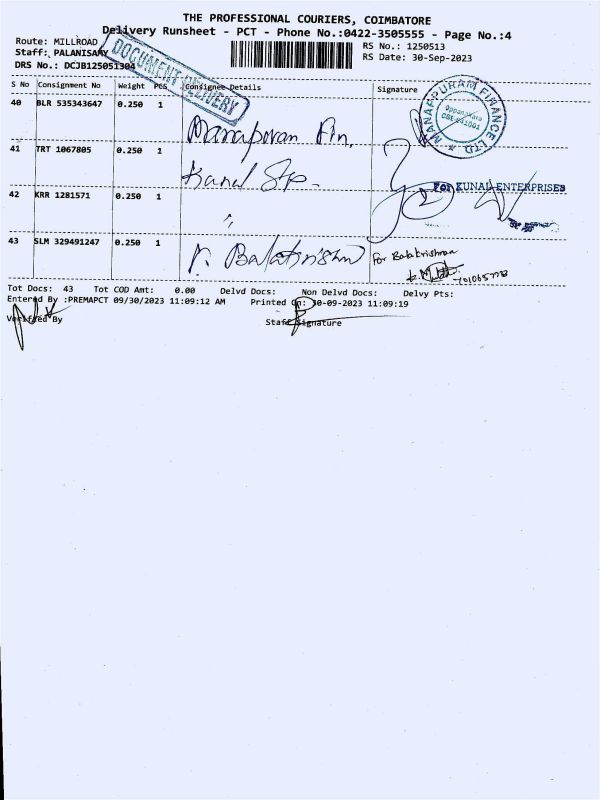 THE PROFESSIONAL COURIERS, COIMBATORE
Delivery Runsheet - PCT - Phone No.:0422-3505555 - Page No.:4
Route: MILLROAD
RS No.: 1250513
Staff: PALANISAMY
RS Date: 30-Sep-2023
DRS No.: DCJB125051304
DOCUMENT DELIVERY
S No Consignment No Weight PCS Consignee Details Signature
40 BLR 535343647 0.250 1
Manapuran Fin.
MANAPPURAM FINANCE LTD.
41 TRT 1067805 0.250 1
FOR KUNAL ENTERPRISES
42 KRR 1281571 0.250 1
"
43 SLM 329491247 0.250 1
For Balakrishnan
Tot Docs: 43 Tot COD Amt: 0.00 Delvd Docs: Non Delvd Docs: Delvy Pts:
Entered By :PREMAPCT 09/30/2023 11:09:12 AM Printed On: 30-09-2023 11:09:19
Verified By
Staff Signature